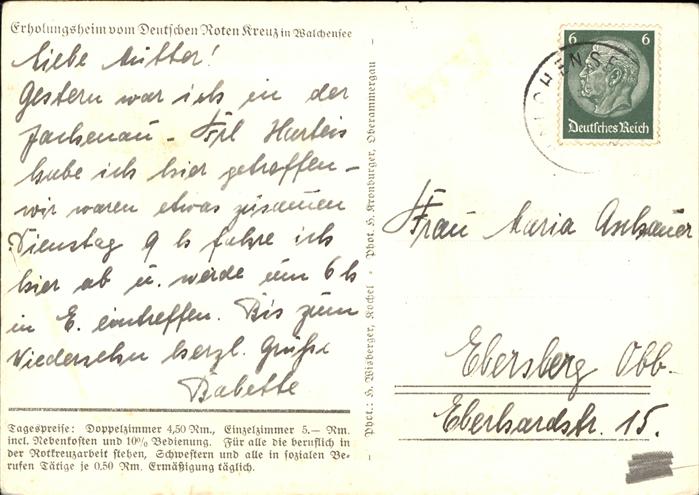 Erholungsheim vom Deutschen Roten Kreuz in Walchensee
Liebe Mutter!
Gestern war ich in der
Jachenau - Frl Hartis
habe ich hier getroffen -
wir waren etwas zusamen
Dienstag 9 h fahre ich
hier ab u. werde um 6 h
in E. eintreffen. Bis zum
Wiedersehn herzl. Grüße
Babette
Tagespreise: Doppelzimmer 4,50 Rm., Einzelzimmer 5.— Rm.
incl. Nebenkosten und 10% Bedienung. Für alle die beruflich in
der Rotkreuzarbeit stehen, Schwestern und alle in sozialen Be-
rufen Tätige je 0,50 Rm. Ermäßigung täglich.
Phot.: H. Wisberger, Kochel - Phot. H. Kronburger, Oberammergau -
6 6
Deutsches Reich
WALCHENSEE
Frau Maria Aschauer
Ebersberg Obb-
Eberhardstr. 15.